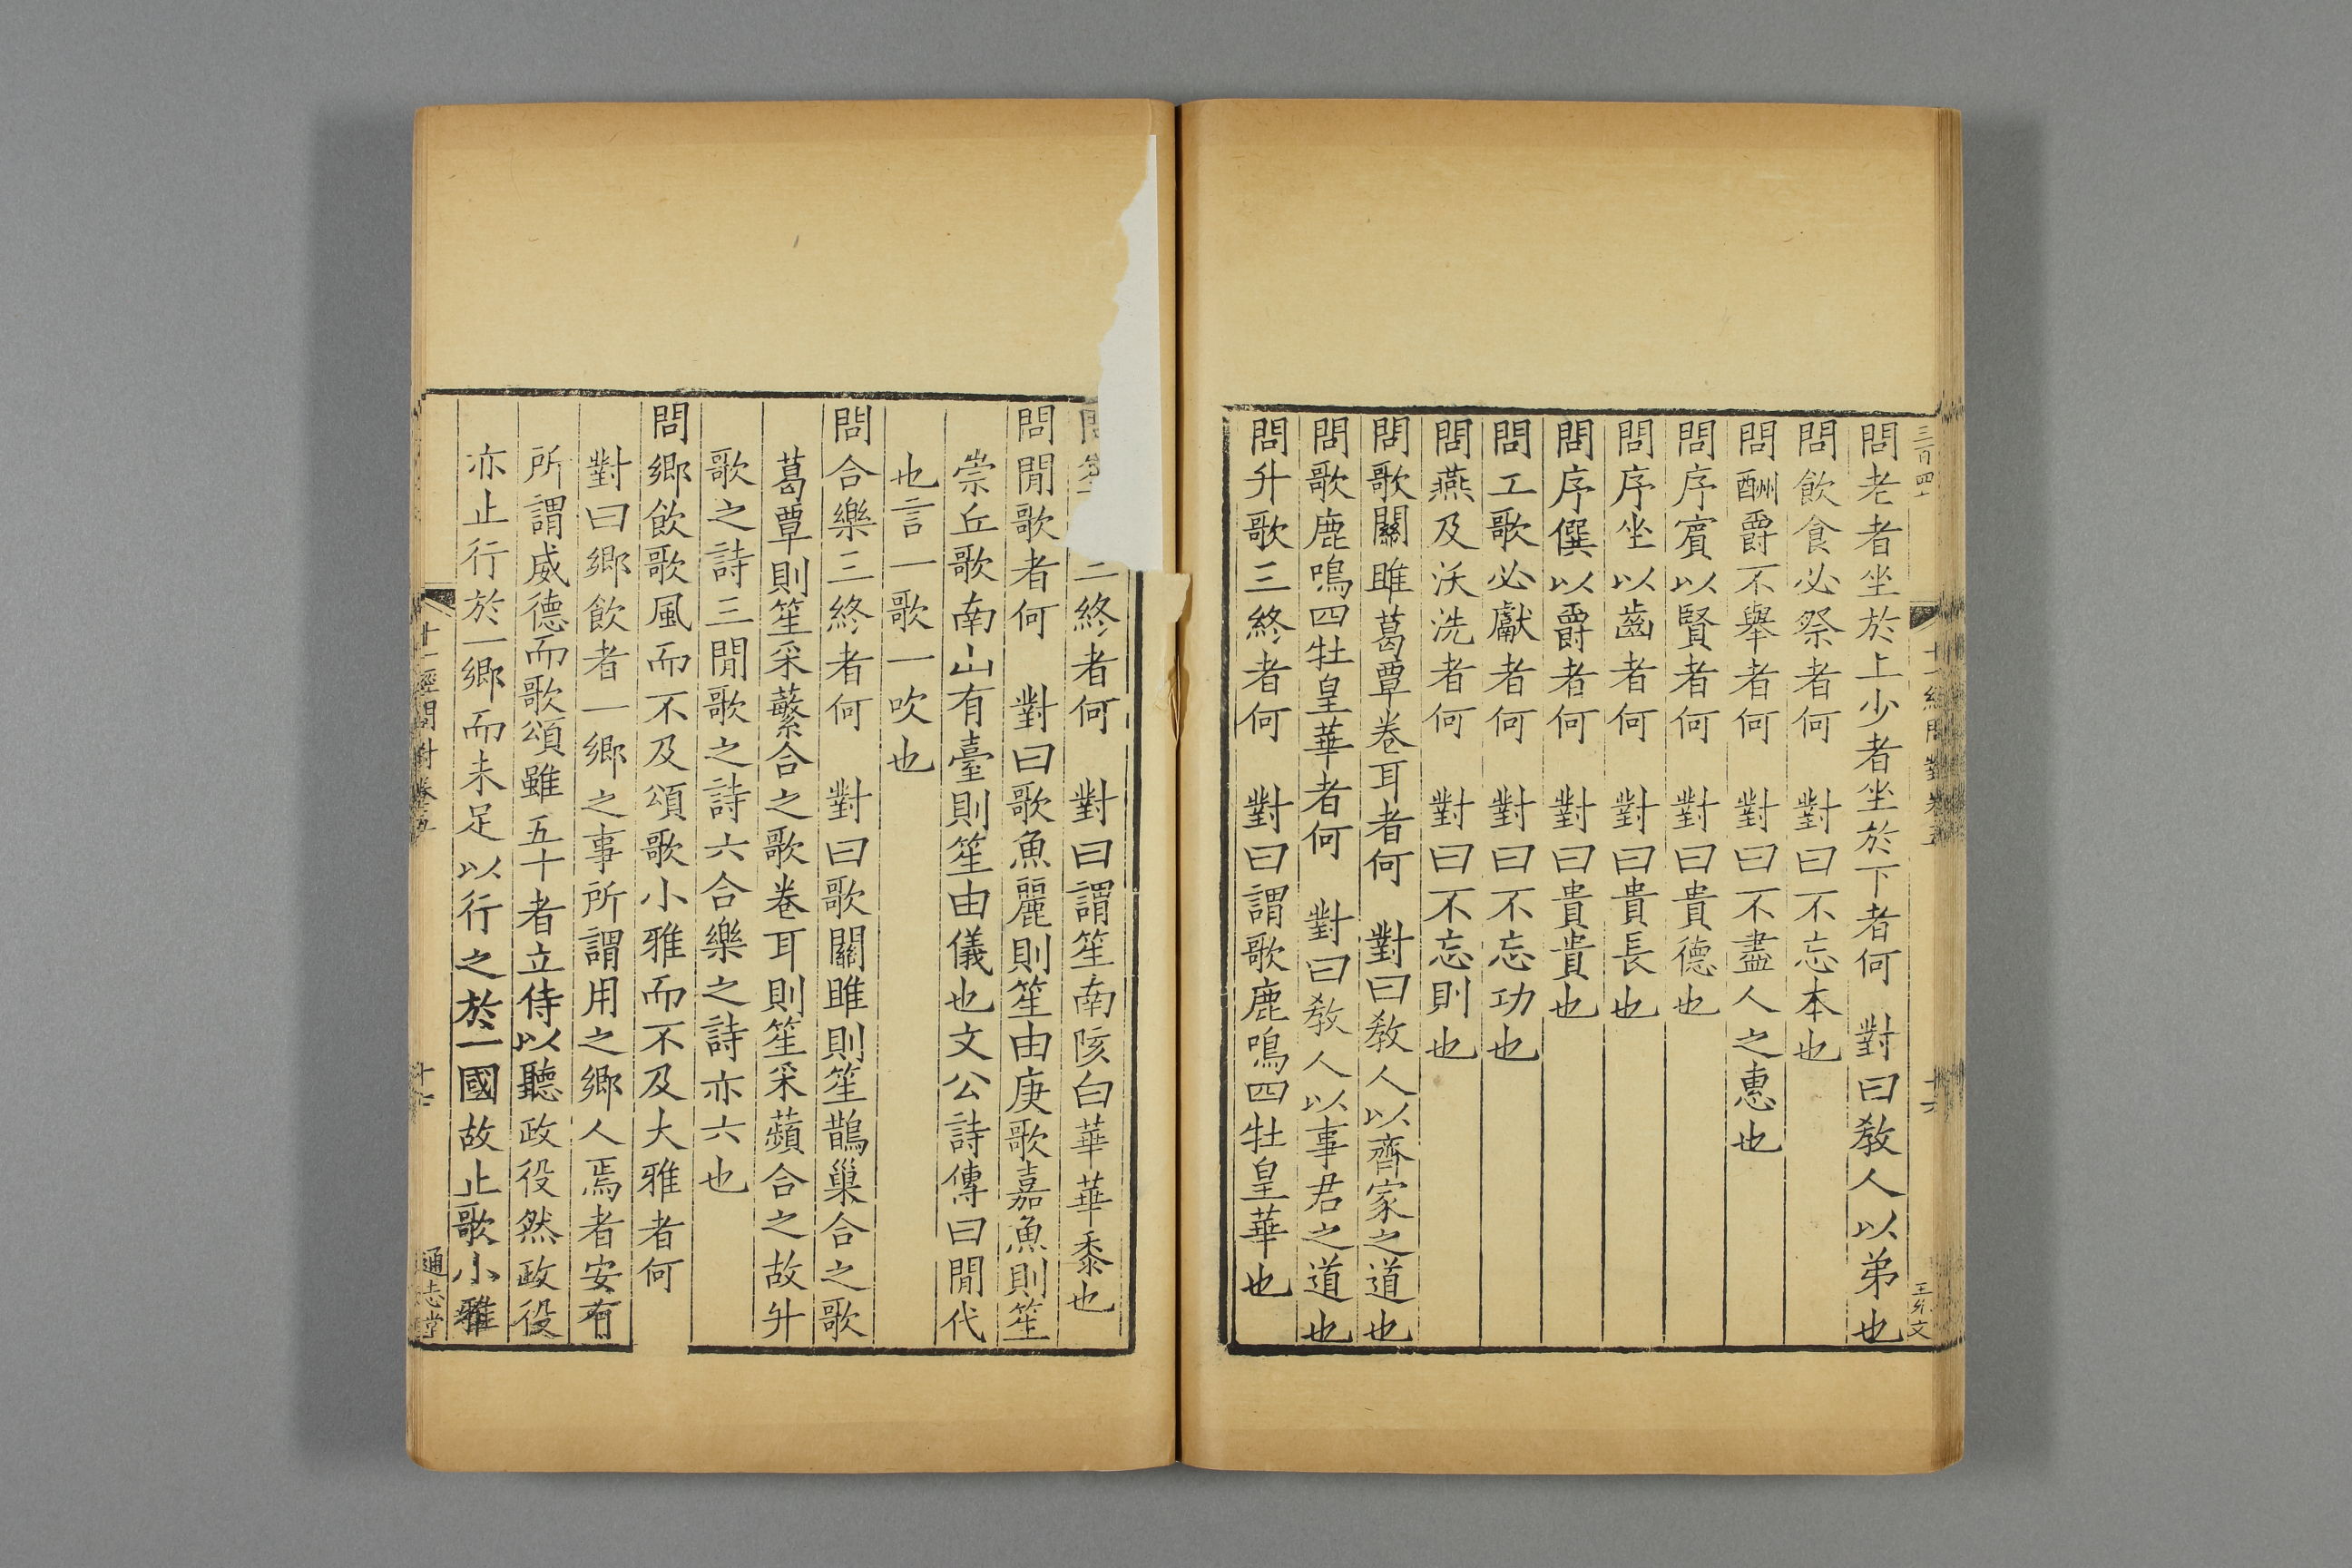 三百四十
十一經問對卷五
十六
問老者坐於上少者坐於下者何　對曰教人以弟也
問飲食必祭者何　對曰不忘本也
問酬爵不舉者何　對曰不盡人之惠也
問序賓以賢者何　對曰貴德也
問序坐以齒者何　對曰貴長也
問序僎以爵者何　對曰貴貴也
問工歌必獻者何　對曰不忘功也
問燕及沃洗者何　對曰不忘則也
問歌關雎葛覃卷耳者何　對曰教人以齊家之道也
問歌鹿鳴四牡皇華者何　對曰教人以事君之道也
問升歌三終者何　對曰謂歌鹿鳴四牡皇華也
三終者何　對曰謂笙南陔白華華黍也
問閒歌者何　對曰歌魚麗則笙由庚歌嘉魚則笙
崇丘歌南山有臺則笙由儀也文公詩傳曰閒代
也言一歌一吹也
問合樂三終者何　對曰歌關雎則笙鵲巢合之歌
葛覃則笙采蘩合之歌卷耳則笙采蘋合之故升
歌之詩三閒歌之詩六合樂之詩亦六也
問鄉飲歌風而不及頌歌小雅而不及大雅者何
對曰鄉飲者一鄉之事所謂用之鄉人焉者安有
所謂威德而歌頌雖五十者立侍以聽政役然政役
亦止行於一鄉而未足以行之於一國故止歌小雅
十一經問對卷五
十七
通志堂